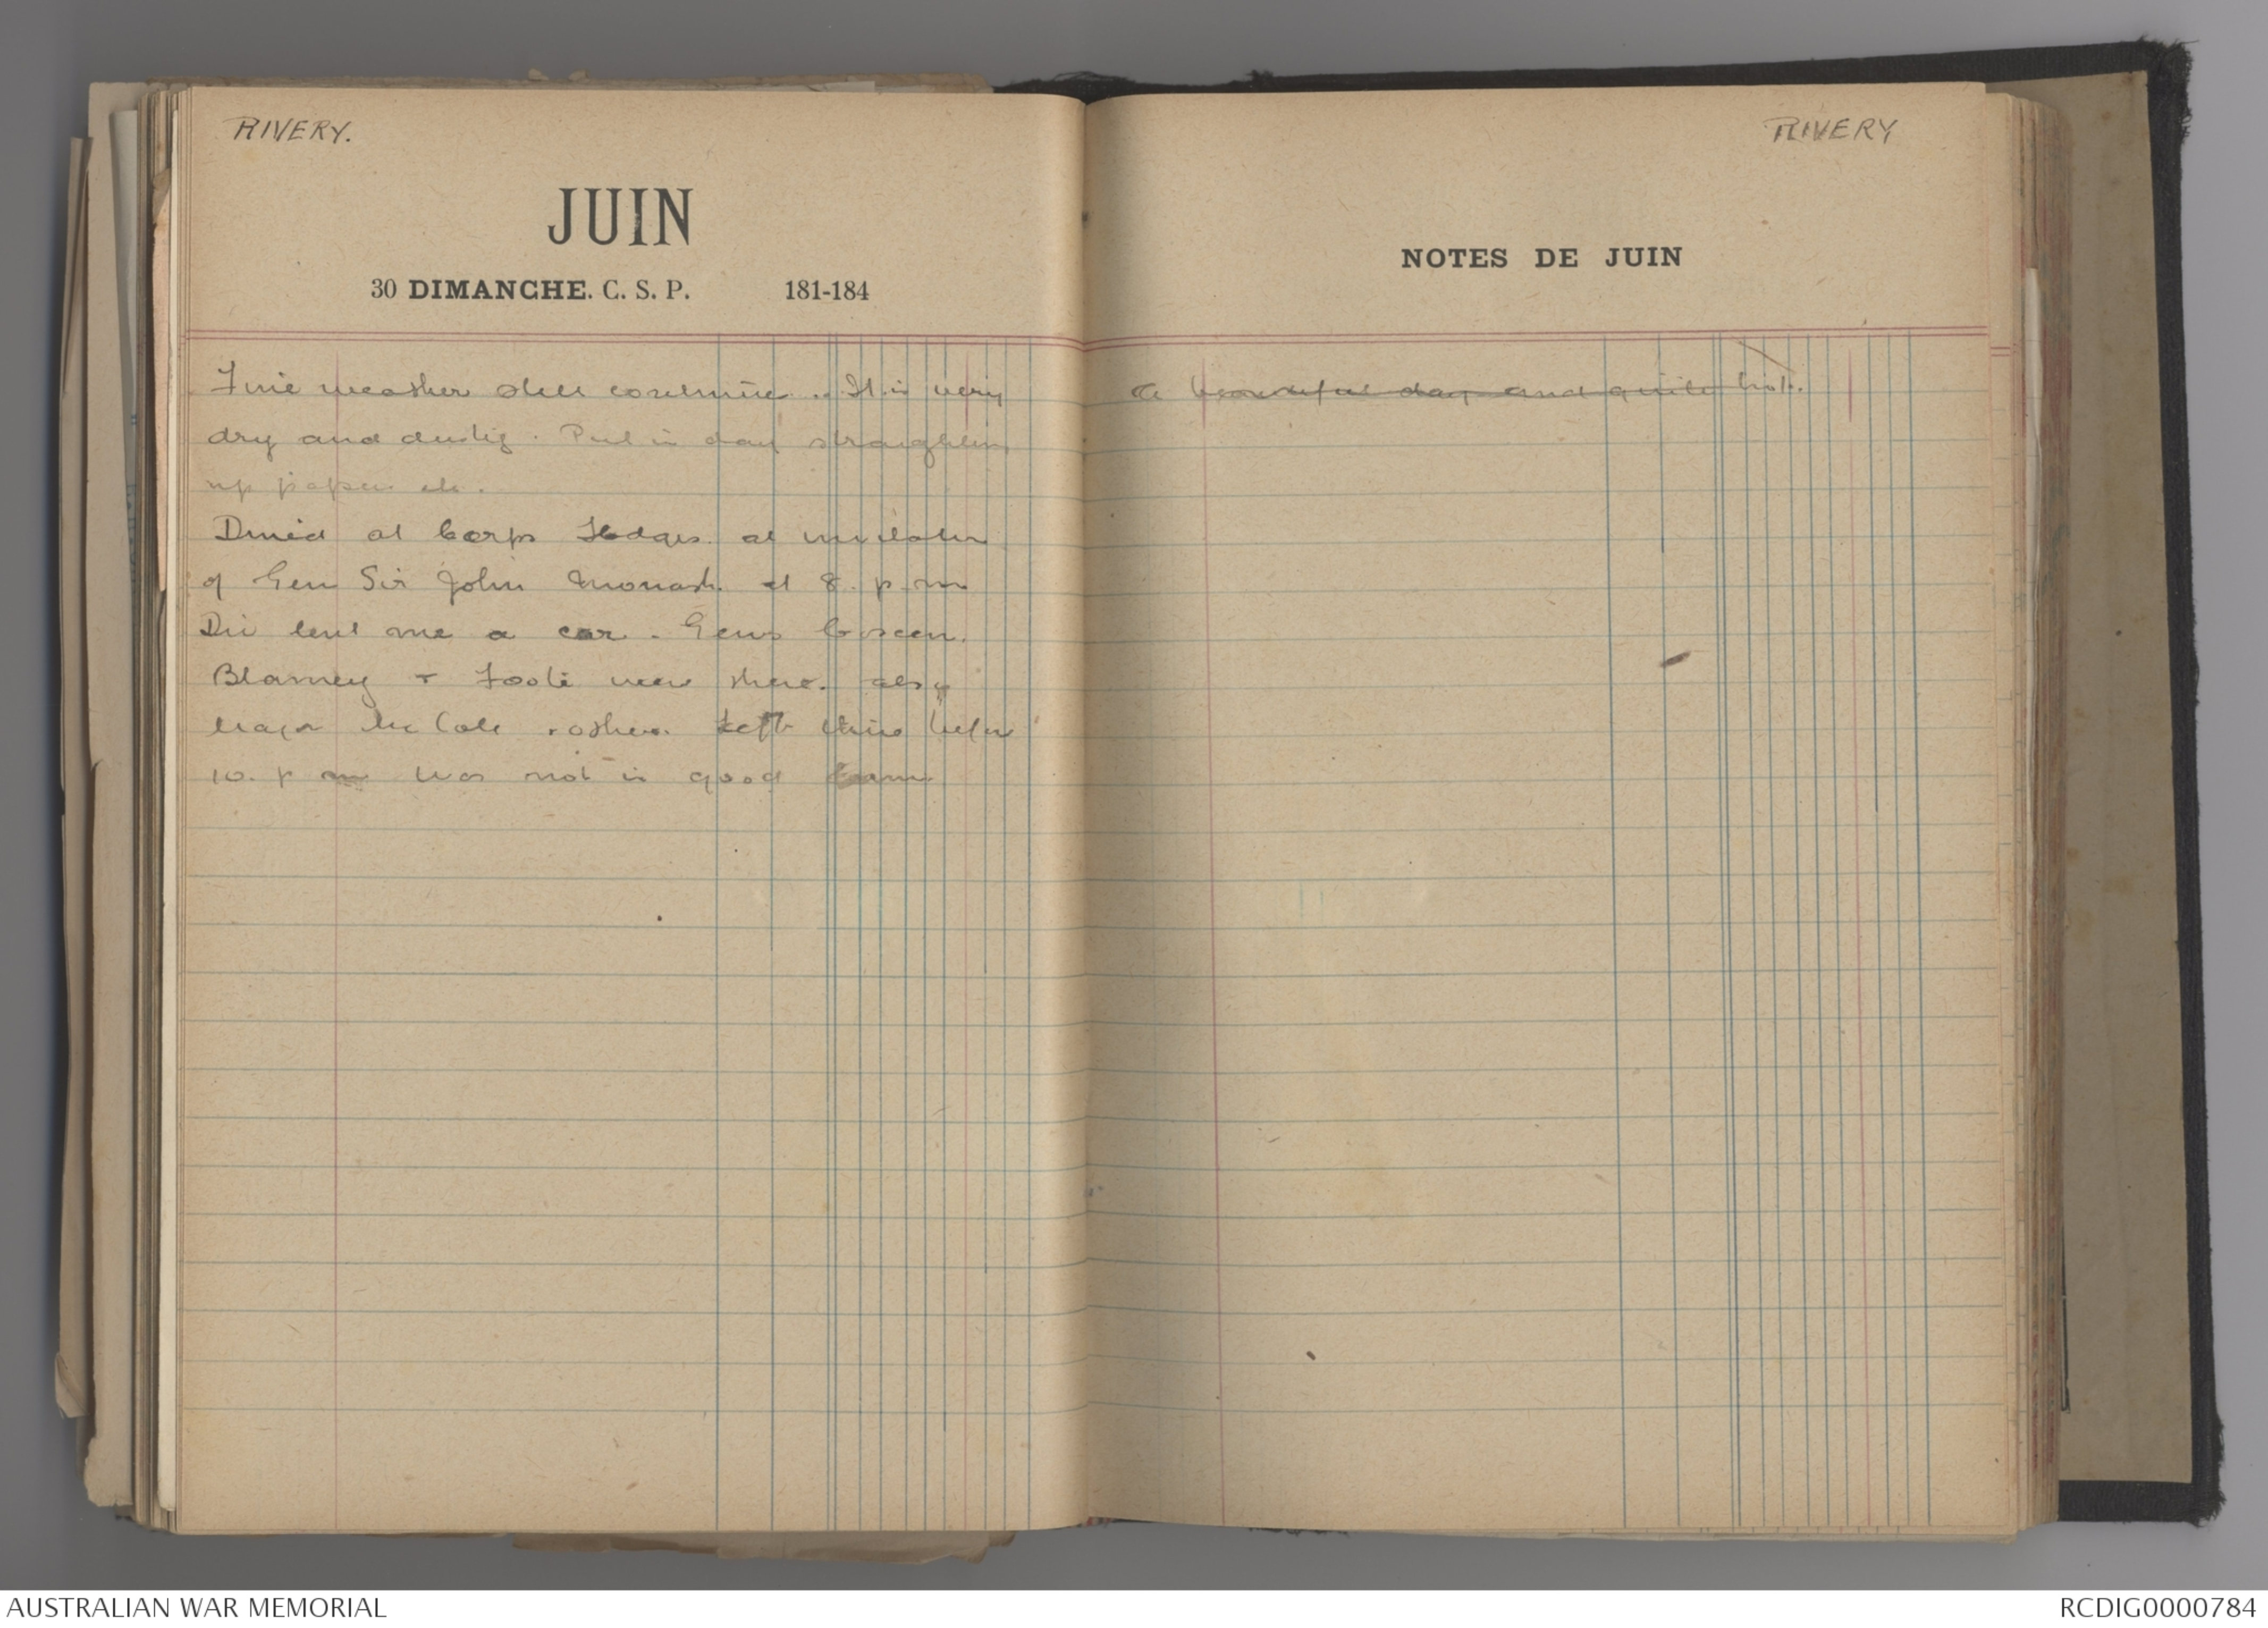 RIVERY.
JUIN
30 DIMANCHE. C. S. P. 181-184
Fine weather still continues. It is very
dry and dusty. Put in day straightening
up papers etc.
Dined at Corps Hdqrs. at invitation
of Gen Sir John Monash at 8. p.m
Div lent me a car. Gens Coxen.
Blamey & Foott were there. also
Major & others. Left there before
10. p m Was not in good form
RIVERY
NOTES DE JUIN
A beautiful day and quite hot.
AUSTRALIAN WAR MEMORIAL
RCDIG0000784